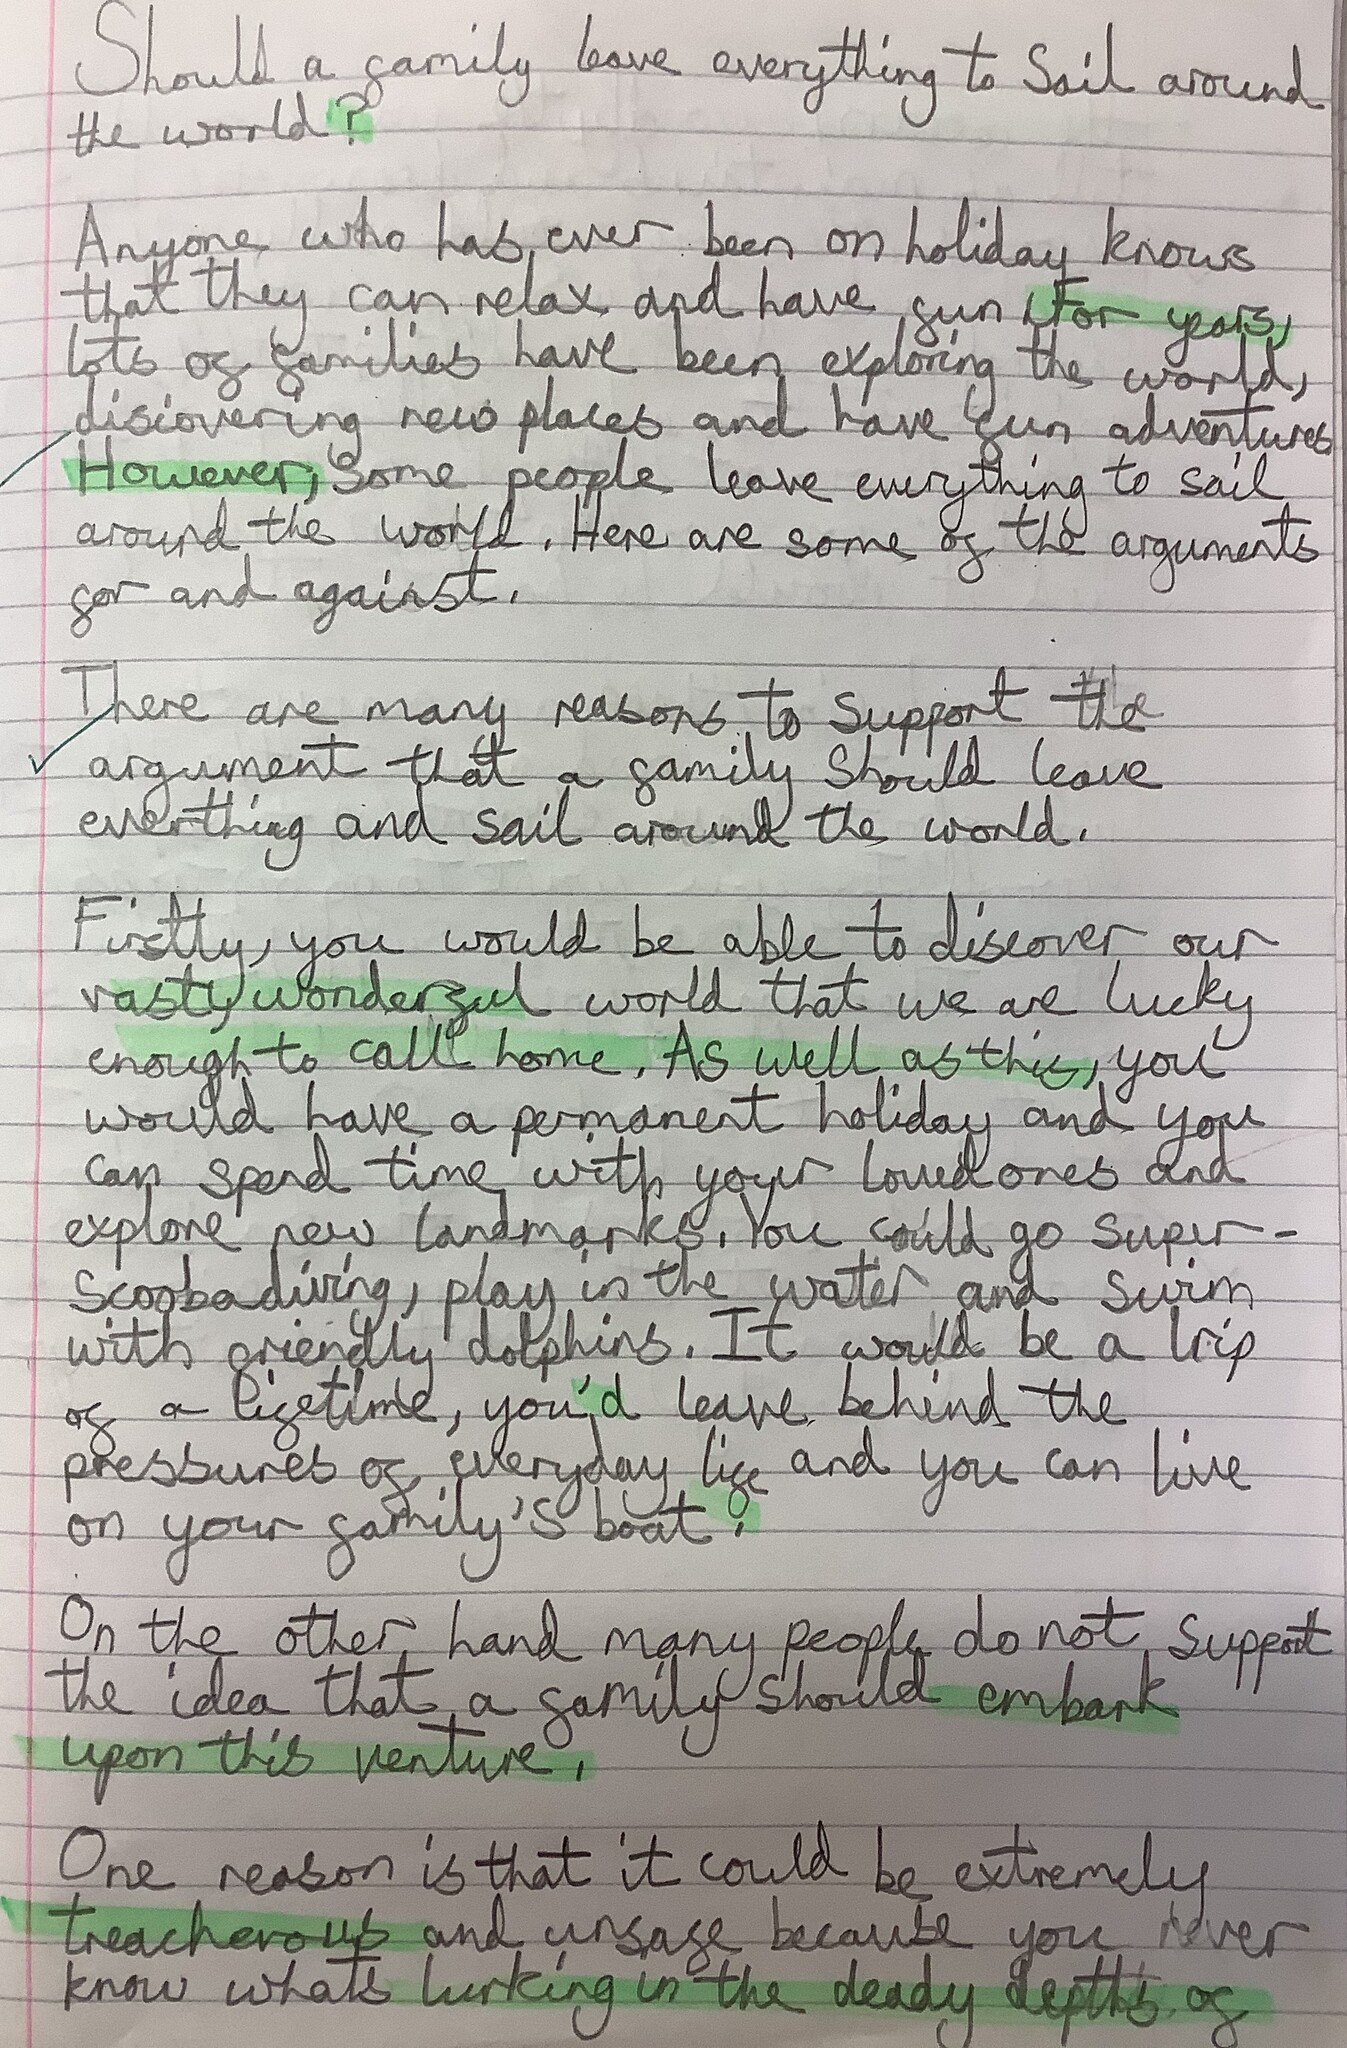 Should a family leave everything to Sail around
the world?
Anyone who has ever been on holiday knows
that they can relax and have fun. For years,
lots of families have been exploring the world,
discovering new places and have fun adventures
However, Some people leave everything to sail
around the world. Here are some of the arguments
for and against.
There are many reasons to Support the
argument that a family Should leave
everthing and sail around the world.
Firstly, you would be able to discover our
vasty wonderful world that we are lucky
enough to call home. As well as this, you
would have a permanent holiday and you
can spend time with your loved ones and
explore new landmarks. You could go Super-
Scoobadiving, play in the water and Swim
with friendly dolphins. It would be a trip
of a lifetime, you'd leave behind the
pressures of everyday life and you can live
on your family's boat.
On the other hand many people do not Support
the idea that a family Should embark
upon this venture.
One reason is that it could be extremely
treacherous and unsafe because you never
know whats lurking in the deady depths of